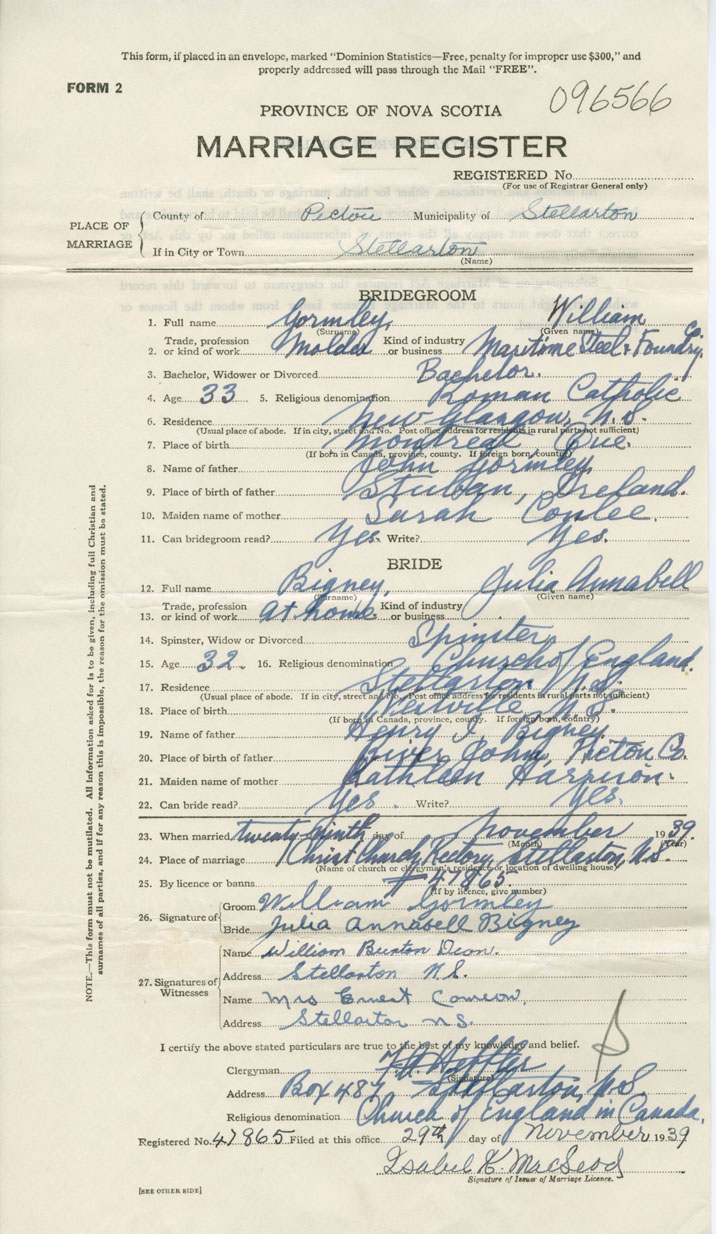 This form, if placed in an envelope, marked "Dominion Statistics—Free, penalty for improper use $300," and
properly addressed will pass through the Mail "FREE".
FORM 2
096566
PROVINCE OF NOVA SCOTIA
MARRIAGE REGISTER
REGISTERED No.
(For use of Registrar General only)
PLACE OF MARRIAGE
County of Pictou Municipality of Stellarton
If in City or Town Stellarton
(Name)
BRIDEGROOM
1. Full name Gormley, William
(Surname) (Given name)
2. Trade, profession or kind of work Molder Kind of industry or business Maritime Steel & Foundry Co.
3. Bachelor, Widower or Divorced Bachelor.
4. Age 33 5. Religious denomination Roman Catholic
6. Residence New Glasgow, N.S.
(Usual place of abode. If in city, street and No. Post office address for residents in rural parts not sufficient)
7. Place of birth Montreal Que.
(If born in Canada, province, county. If foreign born, country)
8. Name of father John Gormley.
9. Place of birth of father Ireland.
10. Maiden name of mother Sarah
11. Can bridegroom read? Yes. Write? Yes.
BRIDE
12. Full name Bigney, Julia Annabell
(Surname) (Given name)
13. Trade, profession or kind of work at home Kind of industry or business
14. Spinster, Widow or Divorced Spinster
15. Age 32. 16. Religious denomination Church of England.
17. Residence Stellarton N.S.
(Usual place of abode. If in city, street and No. Post office address for residents in rural parts not sufficient)
18. Place of birth Westville N.S.
(If born in Canada, province, county. If foreign born, country)
19. Name of father Henry Bigney.
20. Place of birth of father River John, Pictou Co.
21. Maiden name of mother Kathleen Harrison.
22. Can bride read? Yes. Write? Yes.
23. When married twenty ninth day of November 1939.
(Month) (Year)
24. Place of marriage Christ Church Rectory, Stellarton, N.S.
(Name of church or clergyman's residence or location of dwelling house)
25. By licence or banns # 47865.
(If by licence, give number)
26. Signature of
Groom William Gormley
Bride Julia Annabell Bigney
27. Signatures of Witnesses
Name William Burton Dean.
Address Stellarton N.S.
Name Mrs Ernest
Address Stellarton N.S.
I certify the above stated particulars are true to the best of my knowledge and belief.
Clergyman
(Signature)
Address Box 487 Stellarton, N.S
Religious denomination Church of England in Canada.
Registered No. 47865 Filed at this office 29th day of November 1939
Isabel K. MacLeod
Signature of Issuer of Marriage Licence.
[SEE OTHER SIDE]
NOTE.—This form must not be mutilated. All information asked for is to be given, including full Christian and
surnames of all parties, and if for any reason this is impossible, the reason for the omission must be stated.